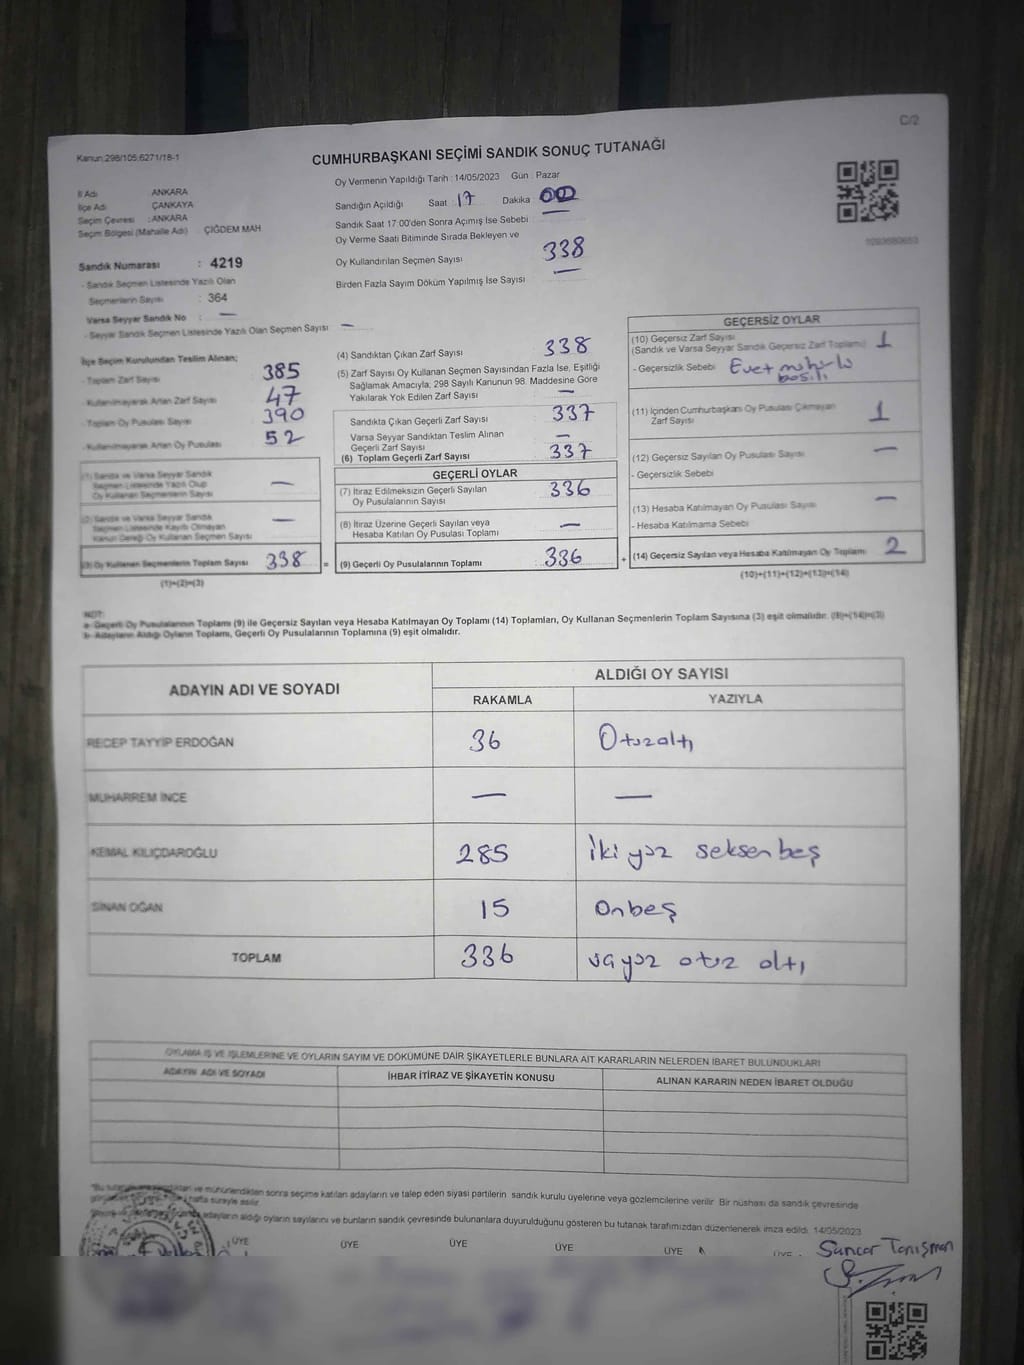 C/2
Kanun:298/105;6271/18-1
CUMHURBAŞKANI SEÇİMİ SANDIK SONUÇ TUTANAĞI
İl Adı : ANKARA
İlçe Adı : ÇANKAYA
Seçim Çevresi : ANKARA
Seçim Bölgesi (Mahalle Adı) : ÇİĞDEM MAH
Oy Vermenin Yapıldığı Tarih : 14/05/2023 Gün : Pazar
Sandığın Açıldığı Saat 17 Dakika 00
Sandık Saat 17:00'den Sonra Açımış İse Sebebi —
Oy Verme Saati Bitiminde Sırada Bekleyen ve
Oy Kullandırılan Seçmen Sayısı 338
Birden Fazla Sayım Döküm Yapılmış İse Sayısı —
Sandık Numarası : 4219
- Sandık Seçmen Listesinde Yazılı Olan
Seçmenlerin Sayısı : 364
Varsa Seyyar Sandık No : —
- Seyyar Sandık Seçmen Listesinde Yazılı Olan Seçmen Sayısı —
İlçe Seçim Kurulundan Teslim Alınan;
- Toplam Zarf Sayısı 385
- Kullanılmayarak Artan Zarf Sayısı 47
- Toplam Oy Pusulası Sayısı 390
- Kullanılmayarak Artan Oy Pusulası 52
(1) Sandık ve Varsa Seyyar Sandık
Seçmen Listesinde Yazılı Olup
Oy Kullanan Seçmenlerin Sayısı —
(2) Sandık ve Varsa Seyyar Sandık
Seçmen Listesinde Kayıtlı Olmayan
Kanun Gereği Oy Kullanan Seçmen Sayısı —
(3) Oy Kullanan Seçmenlerin Toplam Sayısı 338
(1)+(2)=(3)
(4) Sandıktan Çıkan Zarf Sayısı 338
(5) Zarf Sayısı Oy Kullanan Seçmen Sayısından Fazla İse, Eşitliği
Sağlamak Amacıyla; 298 Sayılı Kanunun 98. Maddesine Göre
Yakılarak Yok Edilen Zarf Sayısı —
Sandıkta Çıkan Geçerli Zarf Sayısı 337
Varsa Seyyar Sandıktan Teslim Alınan
Geçerli Zarf Sayısı —
(6) Toplam Geçerli Zarf Sayısı 337
GEÇERLİ OYLAR
(7) İtiraz Edilmeksizin Geçerli Sayılan
Oy Pusulalarının Sayısı 336
(8) İtiraz Üzerine Geçerli Sayılan veya
Hesaba Katılan Oy Pusulası Toplamı —
= (9) Geçerli Oy Pusulalarının Toplamı 336 +
GEÇERSİZ OYLAR
(10) Geçersiz Zarf Sayısı
(Sandık ve Varsa Seyyar Sandık Geçersiz Zarf Toplamı) 1
- Geçersizlik Sebebi Evet mühürlü
basılı
(11) İçinden Cumhurbaşkanı Oy Pusulası Çıkmayan
Zarf Sayısı 1
(12) Geçersiz Sayılan Oy Pusulası Sayısı —
- Geçersizlik Sebebi
(13) Hesaba Katılmayan Oy Pusulası Sayısı —
- Hesaba Katılmama Sebebi
(14) Geçersiz Sayılan veya Hesaba Katılmayan Oy Toplamı 2
(10)+(11)+(12)+(13)=(14)
NOT:
a- Geçerli Oy Pusulalarının Toplamı (9) ile Geçersiz Sayılan veya Hesaba Katılmayan Oy Toplamı (14) Toplamları, Oy Kullanan Seçmenlerin Toplam Sayısına (3) eşit olmalıdır. (9)+(14)=(3)
b- Adayların Aldığı Oyların Toplamı, Geçerli Oy Pusulalarının Toplamına (9) eşit olmalıdır.
ADAYIN ADI VE SOYADI ALDIĞI OY SAYISI
RAKAMLA YAZIYLA
RECEP TAYYİP ERDOĞAN 36 Otuzaltı
MUHARREM İNCE — —
KEMAL KILIÇDAROĞLU 285 İkiyüz seksenbeş
SİNAN OĞAN 15 Onbeş
TOPLAM 336 üçyüz otuz altı
OYLAMA İŞ VE İŞLEMLERİNE VE OYLARIN SAYIM VE DÖKÜMÜNE DAİR ŞİKAYETLERLE BUNLARA AİT KARARLARIN NELERDEN İBARET BULUNDUKLARI
ADAYIN ADI VE SOYADI İHBAR İTİRAZ VE ŞİKAYETİN KONUSU ALINAN KARARIN NEDEN İBARET OLDUĞU
sonra seçime katılan adayların ve talep eden siyasi partilerin sandık kurulu üyelerine veya gözlemcilerine verilir. Bir nüshası da sandık çevresinde
hafta süreyle asılır.
adayların aldığı oyların sayılarını ve bunların sandık çevresinde bulunanlara duyurulduğunu gösteren bu tutanak tarafımızdan düzenlenerek imza edildi. 14/05/2023
ÜYE ÜYE ÜYE ÜYE ÜYE ÜYE
Suncar Tanışman